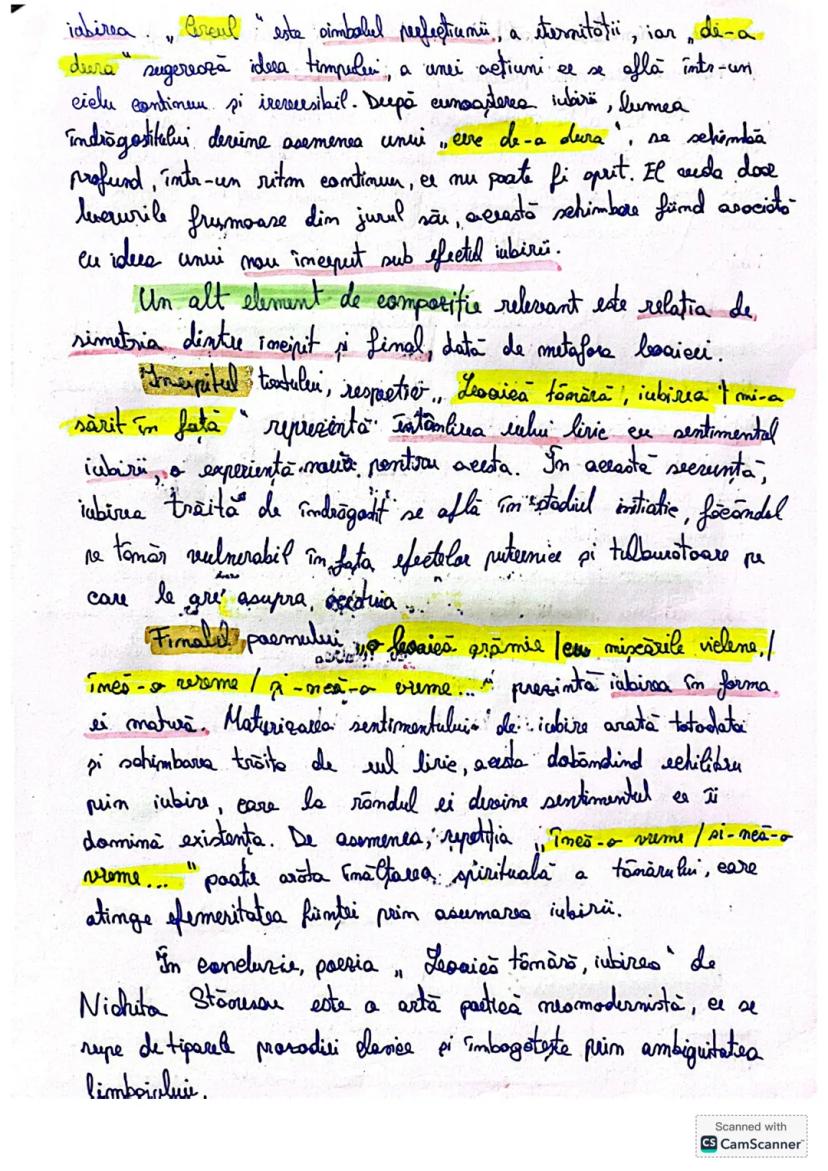 iubirea. „Cercul" este simbolul perfecțiunii, a eternității, iar „de-a
dura" sugerează ideea timpului, a unei acțiuni ce se află într-un
ciclu continuu și ireversibil. După cunoașterea iubirii, lumea
îndrăgostitului devine asemenea unui „cerc de-a dura", se schimbă
profund, într-un ritm continuu, ce nu poate fi oprit. El acum doar
lucrurile frumoase din jurul său, această schimbare fiind asociată
cu ideea unui nou început sub efectul iubirii.
Un alt element de compoziție relevant este relația de
simetria dintre incipit și final, dată de metafora leoaicei.
Incipitul textului, respectiv „Leoaică tânără, iubirea / mi-a
sărit în față" reprezintă întâlnirea eului liric cu sentimentul
iubirii, o experiență nouă pentru acesta. În această secvență,
iubirea trăită de îndrăgostit se află în stadiul inițiatic, făcându-l
pe tânăr vulnerabil în fața efectelor puternice și tulburătoare pe
care le are asupra acestuia.
Finalul poemului „o leoaică arămie / cu mișcările viclene, /
încă-o vreme / și-ncă-o vreme..." prezintă iubirea în forma
ei matură. Maturizarea sentimentului de iubire arată totodată
și schimbarea trăită de eul liric, acesta dobândind echilibru
prin iubire, care la rândul ei devine sentimentul ce îi
domină existența. De asemenea, repetiția „încă-o vreme / și-ncă-o
vreme..." poate arăta înălțarea spirituală a tânărului, care
atinge efemeritatea ființei prin asumarea iubirii.
În concluzie, poezia „Leoaică tânără, iubirea" de
Nichita Stănescu este o artă poetică neomodernistă, ce se
rupe de tiparele prozodiei clasice și îmbogățește prin ambiguitatea
limbajului.
Scanned with
CS CamScanner